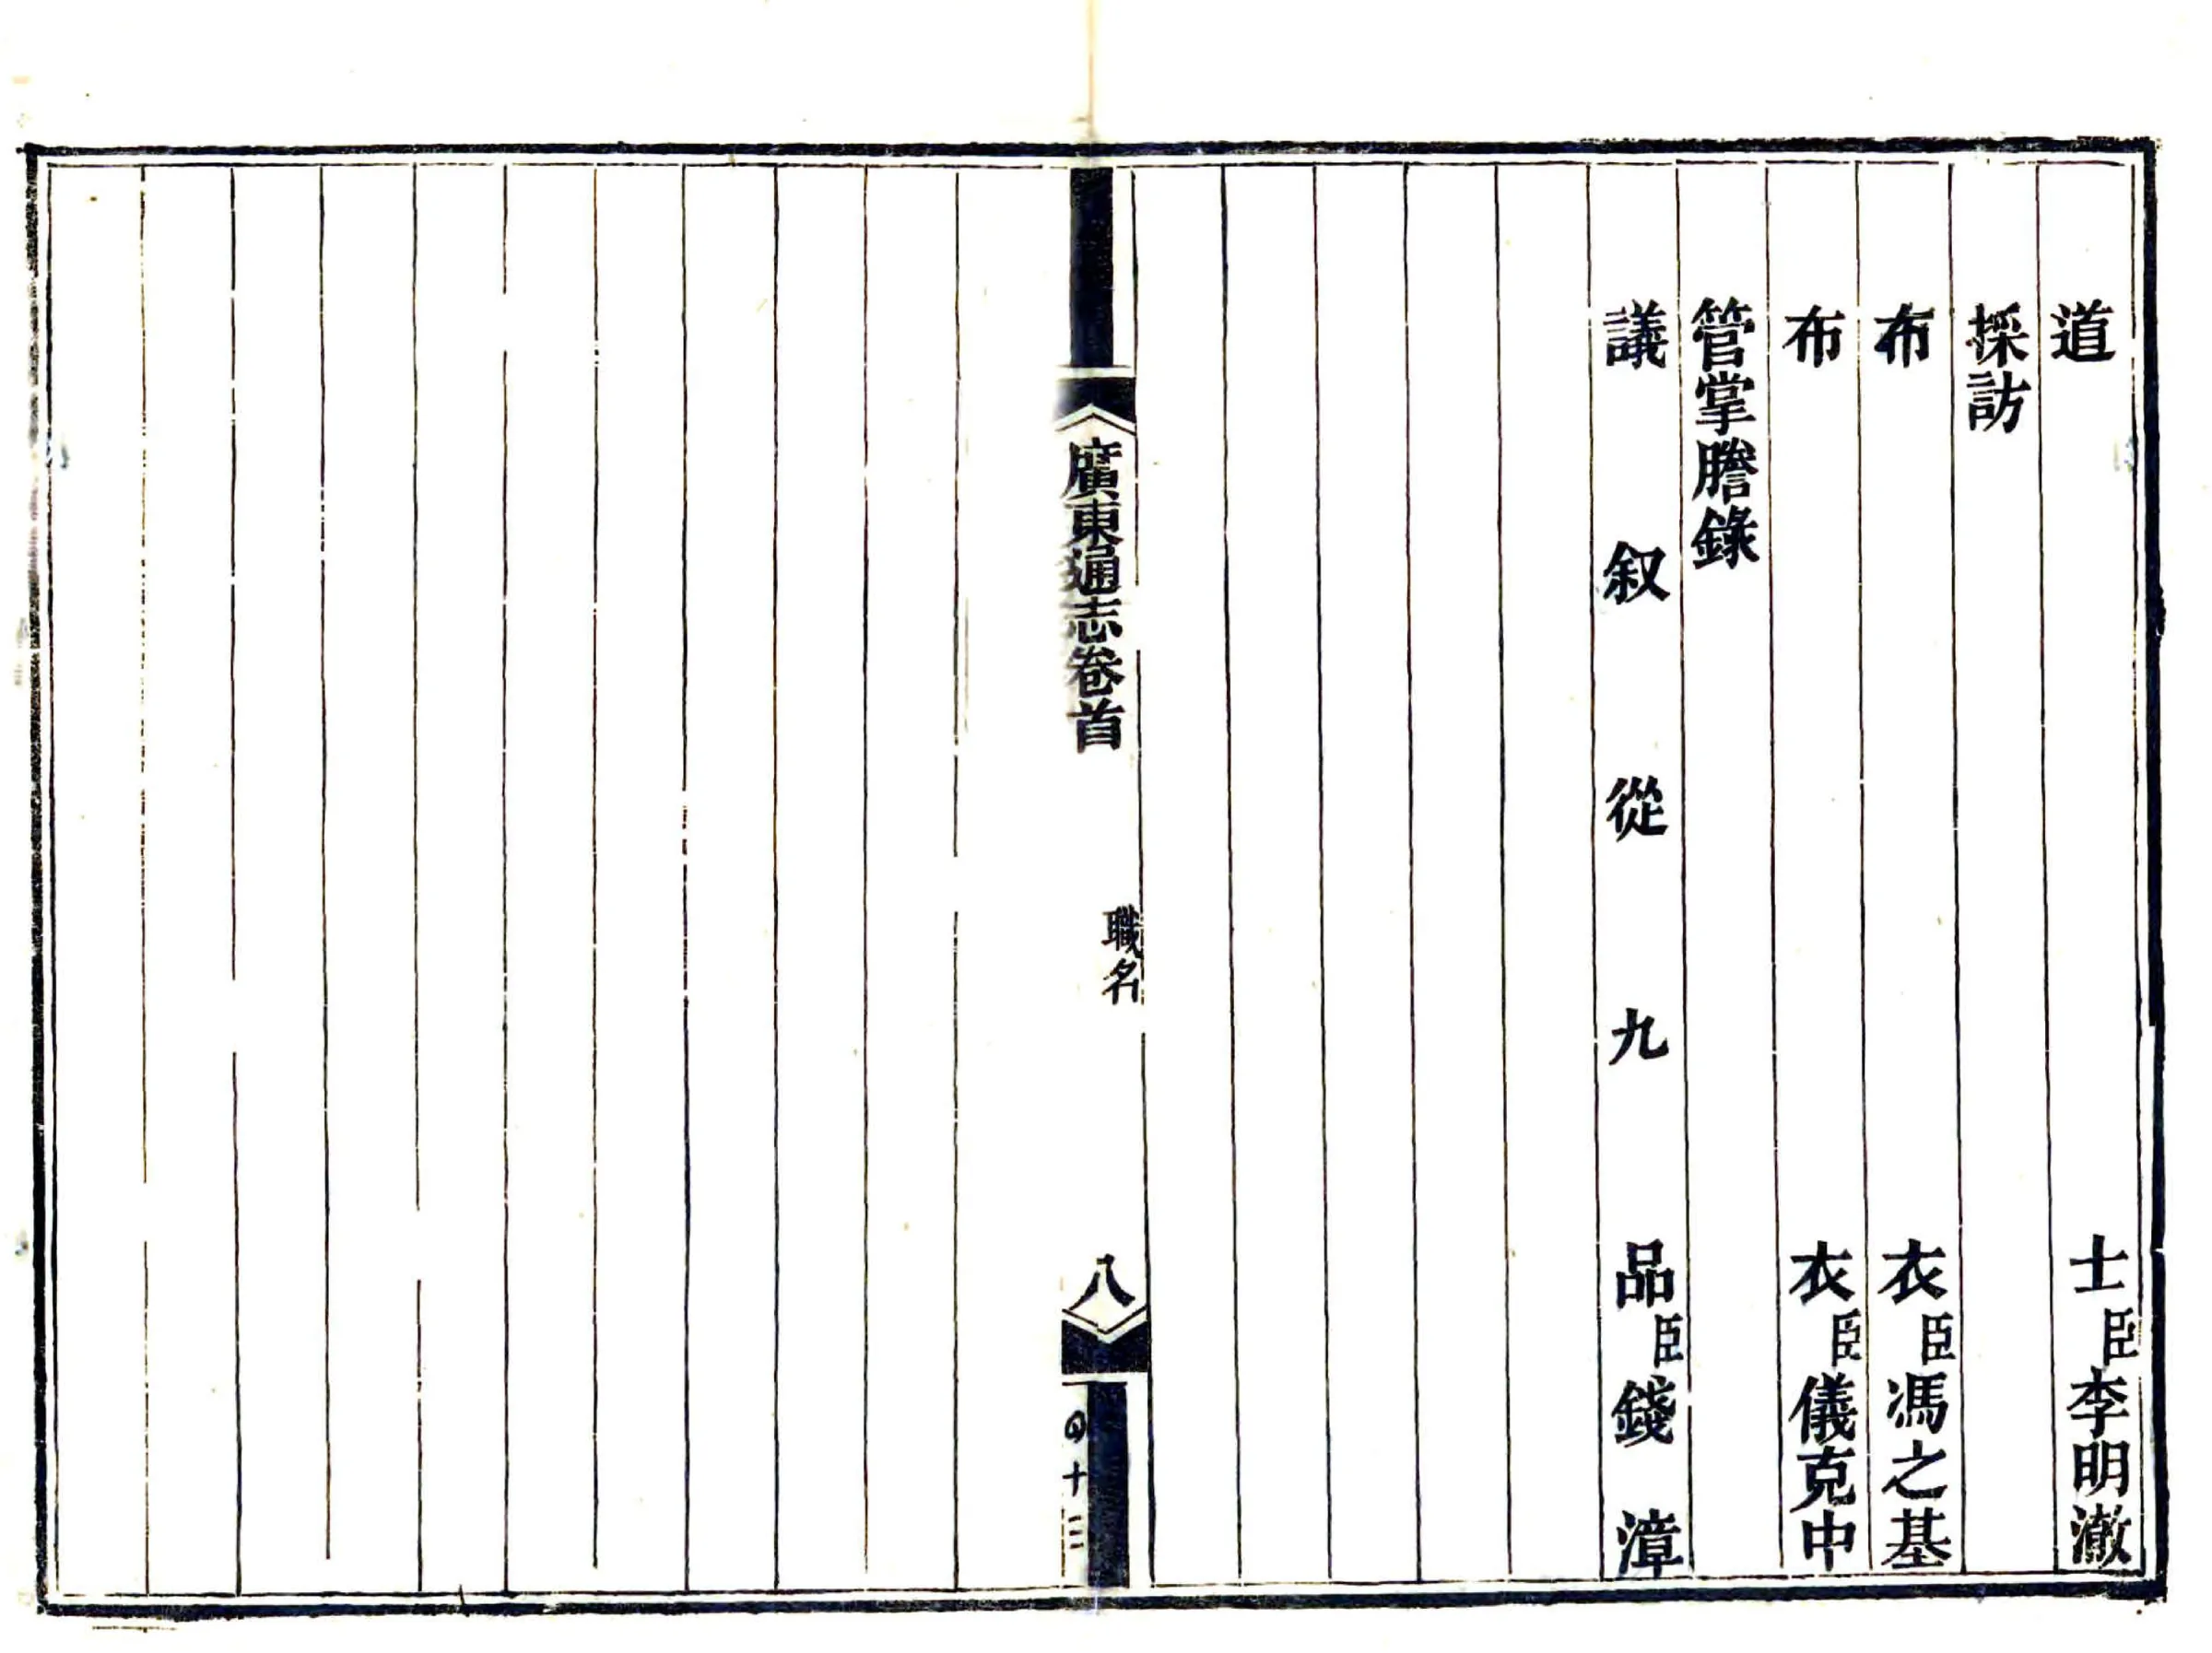 道士臣李明澈
採訪
布衣臣馮之基
布衣臣儀克中
管掌謄錄
議叙從九品臣錢漳
廣東通志卷首
職名
八
四十三